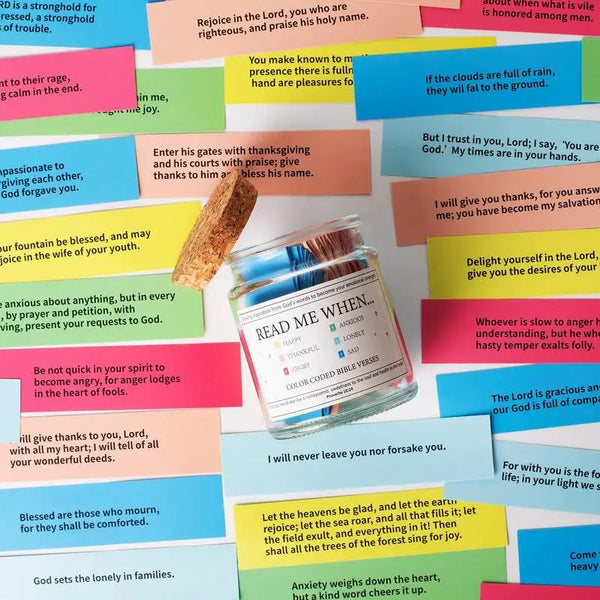 RD is a stronghold for
ressed, a stronghold
s of trouble.
Rejoice in the Lord, you who are
righteous, and praise his holy name.
about when what is vile
is honored among men.
nt to their rage,
g calm in the end.
in me,
me joy.
You make known to m
presence there is fulln
hand are pleasures fo
If the clouds are full of rain,
they wil fal to the ground.
passionate to
rgiving each other,
God forgave you.
Enter his gates with thanksgiving
and his courts with praise; give
thanks to him and bless his name.
But I trust in you, Lord; I say, 'You are
God.' My times are in your hands.
I will give you thanks, for you answ
me; you have become my salvation
our fountain be blessed, and may
joice in the wife of your youth.
Delight yourself in the Lord,
give you the desires of your
e anxious about anything, but in every
, by prayer and petition, with
ving, present your requests to God.
Whoever is slow to anger h
understanding, but he wh
hasty temper exalts folly.
inspiration from God's words to become your emotional strength
READ ME WHEN...
HAPPY
THANKFUL
ANGRY
ANXIOUS
LONELY
SAD
COLOR CODED BIBLE VERSES
words are like a honeycomb, sweetness to the soul and health to the body
Proverbs 16:24
Be not quick in your spirit to
become angry, for anger lodges
in the heart of fools.
The Lord is gracious an
our God is full of compa
will give thanks to you, Lord,
with all my heart; I will tell of all
your wonderful deeds.
I will never leave you nor forsake you.
For with you is the fo
life; in your light we s
Blessed are those who mourn,
for they shall be comforted.
Let the heavens be glad, and let the earth
rejoice; let the sea roar, and all that fills it; let
the field exult, and everything in it! Then
shall all the trees of the forest sing for joy.
Come
heavy
God sets the lonely in families.
Anxiety weighs down the heart,
but a kind word cheers it up.